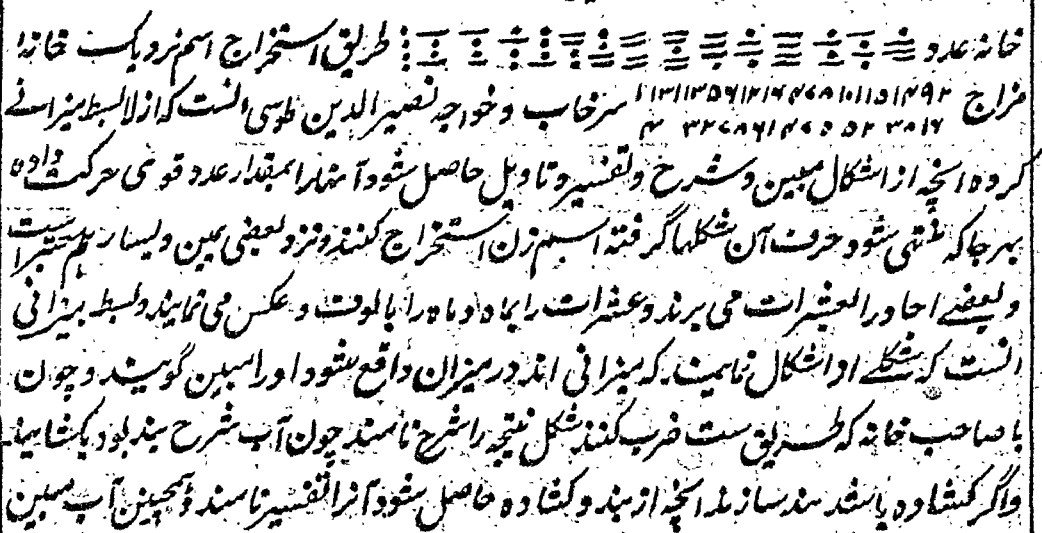 خانه عدد طریق استخراج اسم نزدیک خانه
مزاج سرخاب و خواجه نصیر الدین طوسی انست که از لا بسط میزانے
کرده انچه از اشکال مبین و شرح و تفسیر و تاویل حاصل شود آنها را بمقدار عدد قوسی حرکت داده
بهر جا که منتهی شود حرف آن شکلها گرفته اسم زن استخراج کنند و نزد بعضی یمین و یسار هم معتبر است
و بعضے احاد را بعشرات می برند و عشرات را بماه و ماه را بالوف و عکس می نمایند و بسط میزانی
انست که شکلے از اشکال نامیند که میزانی اند در میزان واقع شود او را مبین گویند و چون
با صاحب خانه که طریق ست ضرب کنند شکل نتیجه را شرح نامند چون آب شرح بند بود بکشایند
و اگر کشاده باشد بند سازند انچه از بند و کشاده حاصل شود آنرا تفسیر نامند و همچنین آب مبین